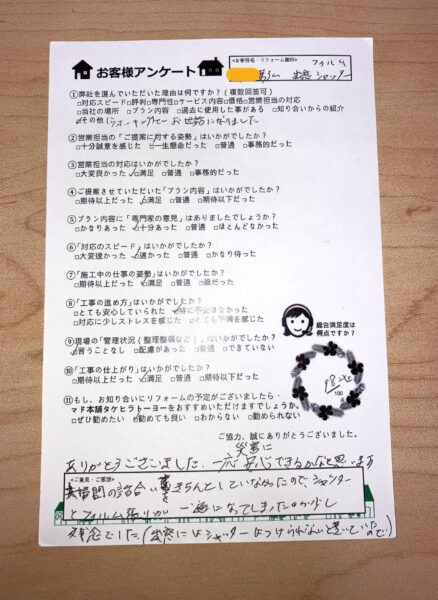 お客様アンケート
<お客様名・リフォーム箇所>
フィルム
出窓 シャッター
①弊社を選んでいただいた理由は何ですか?(複数回答可)
□対応スピード□評判□専門性□サービス内容□価格□営業担当の対応
□当社の場所 □プラン内容 □過去に使用した事がある □知り合いからの紹介
☑その他(ウォーキングでお世話になりました
②営業担当の「ご提案に対する姿勢」はいかがでしたか?
□十分誠意を感じた ☑一生懸命だった □普通 □事務的だった
③営業担当の対応はいかがでしたか?
□大変良かった ☑満足 □普通 □事務的だった
④ご提案させていただいた「プラン内容」はいかがでしたか?
□期待以上だった ☑満足 □普通 □期待以下だった
⑤プラン内容に「専門家の意見」はありましたでしょうか?
□かなりあった ☑十分あった □普通 □ほとんどなかった
⑥「対応のスピード」はいかがでしたか?
□大変速かった ☑速かった □普通 □かなり待った
⑦「施工中の仕事の姿勢」はいかがでしたか?
□期待以上だった ☑満足 □普通 □嫌だった
⑧「工事の進め方」はいかがでしたか?
□とても安心していられた ☑特に不安はなかった
□対応に少しストレスを感じた □とても不満を感じた
⑨現場の「管理状況(整理整頓など)」はいかがでしたか?
☑言うことなし □配慮があった □普通 □できていない
⑩「工事の仕上がり」はいかがでしたか?
□期待以上だった ☑満足 □普通 □期待以下だった
⑪もし、お知り合いにリフォームの予定がございましたら、
マド本舗タケヒラトーヨーをおすすめいただけますでしょうか。
□ぜひ勧めたい ☑勧めても良い □わからない □勧められない
総合満足度は
何点ですか?
98点
100
ご協力、誠にありがとうございました。
災害に
ありがとうございました。一応安心できるかなと思います
<ご意見・ご感想>
夫婦間の話合いをきちんとしていなかったので、シャッター
とフィルム張りが 一緒になってしまったのが少し
残念でした(出窓にはシャッターはつけられないと思っていたので)